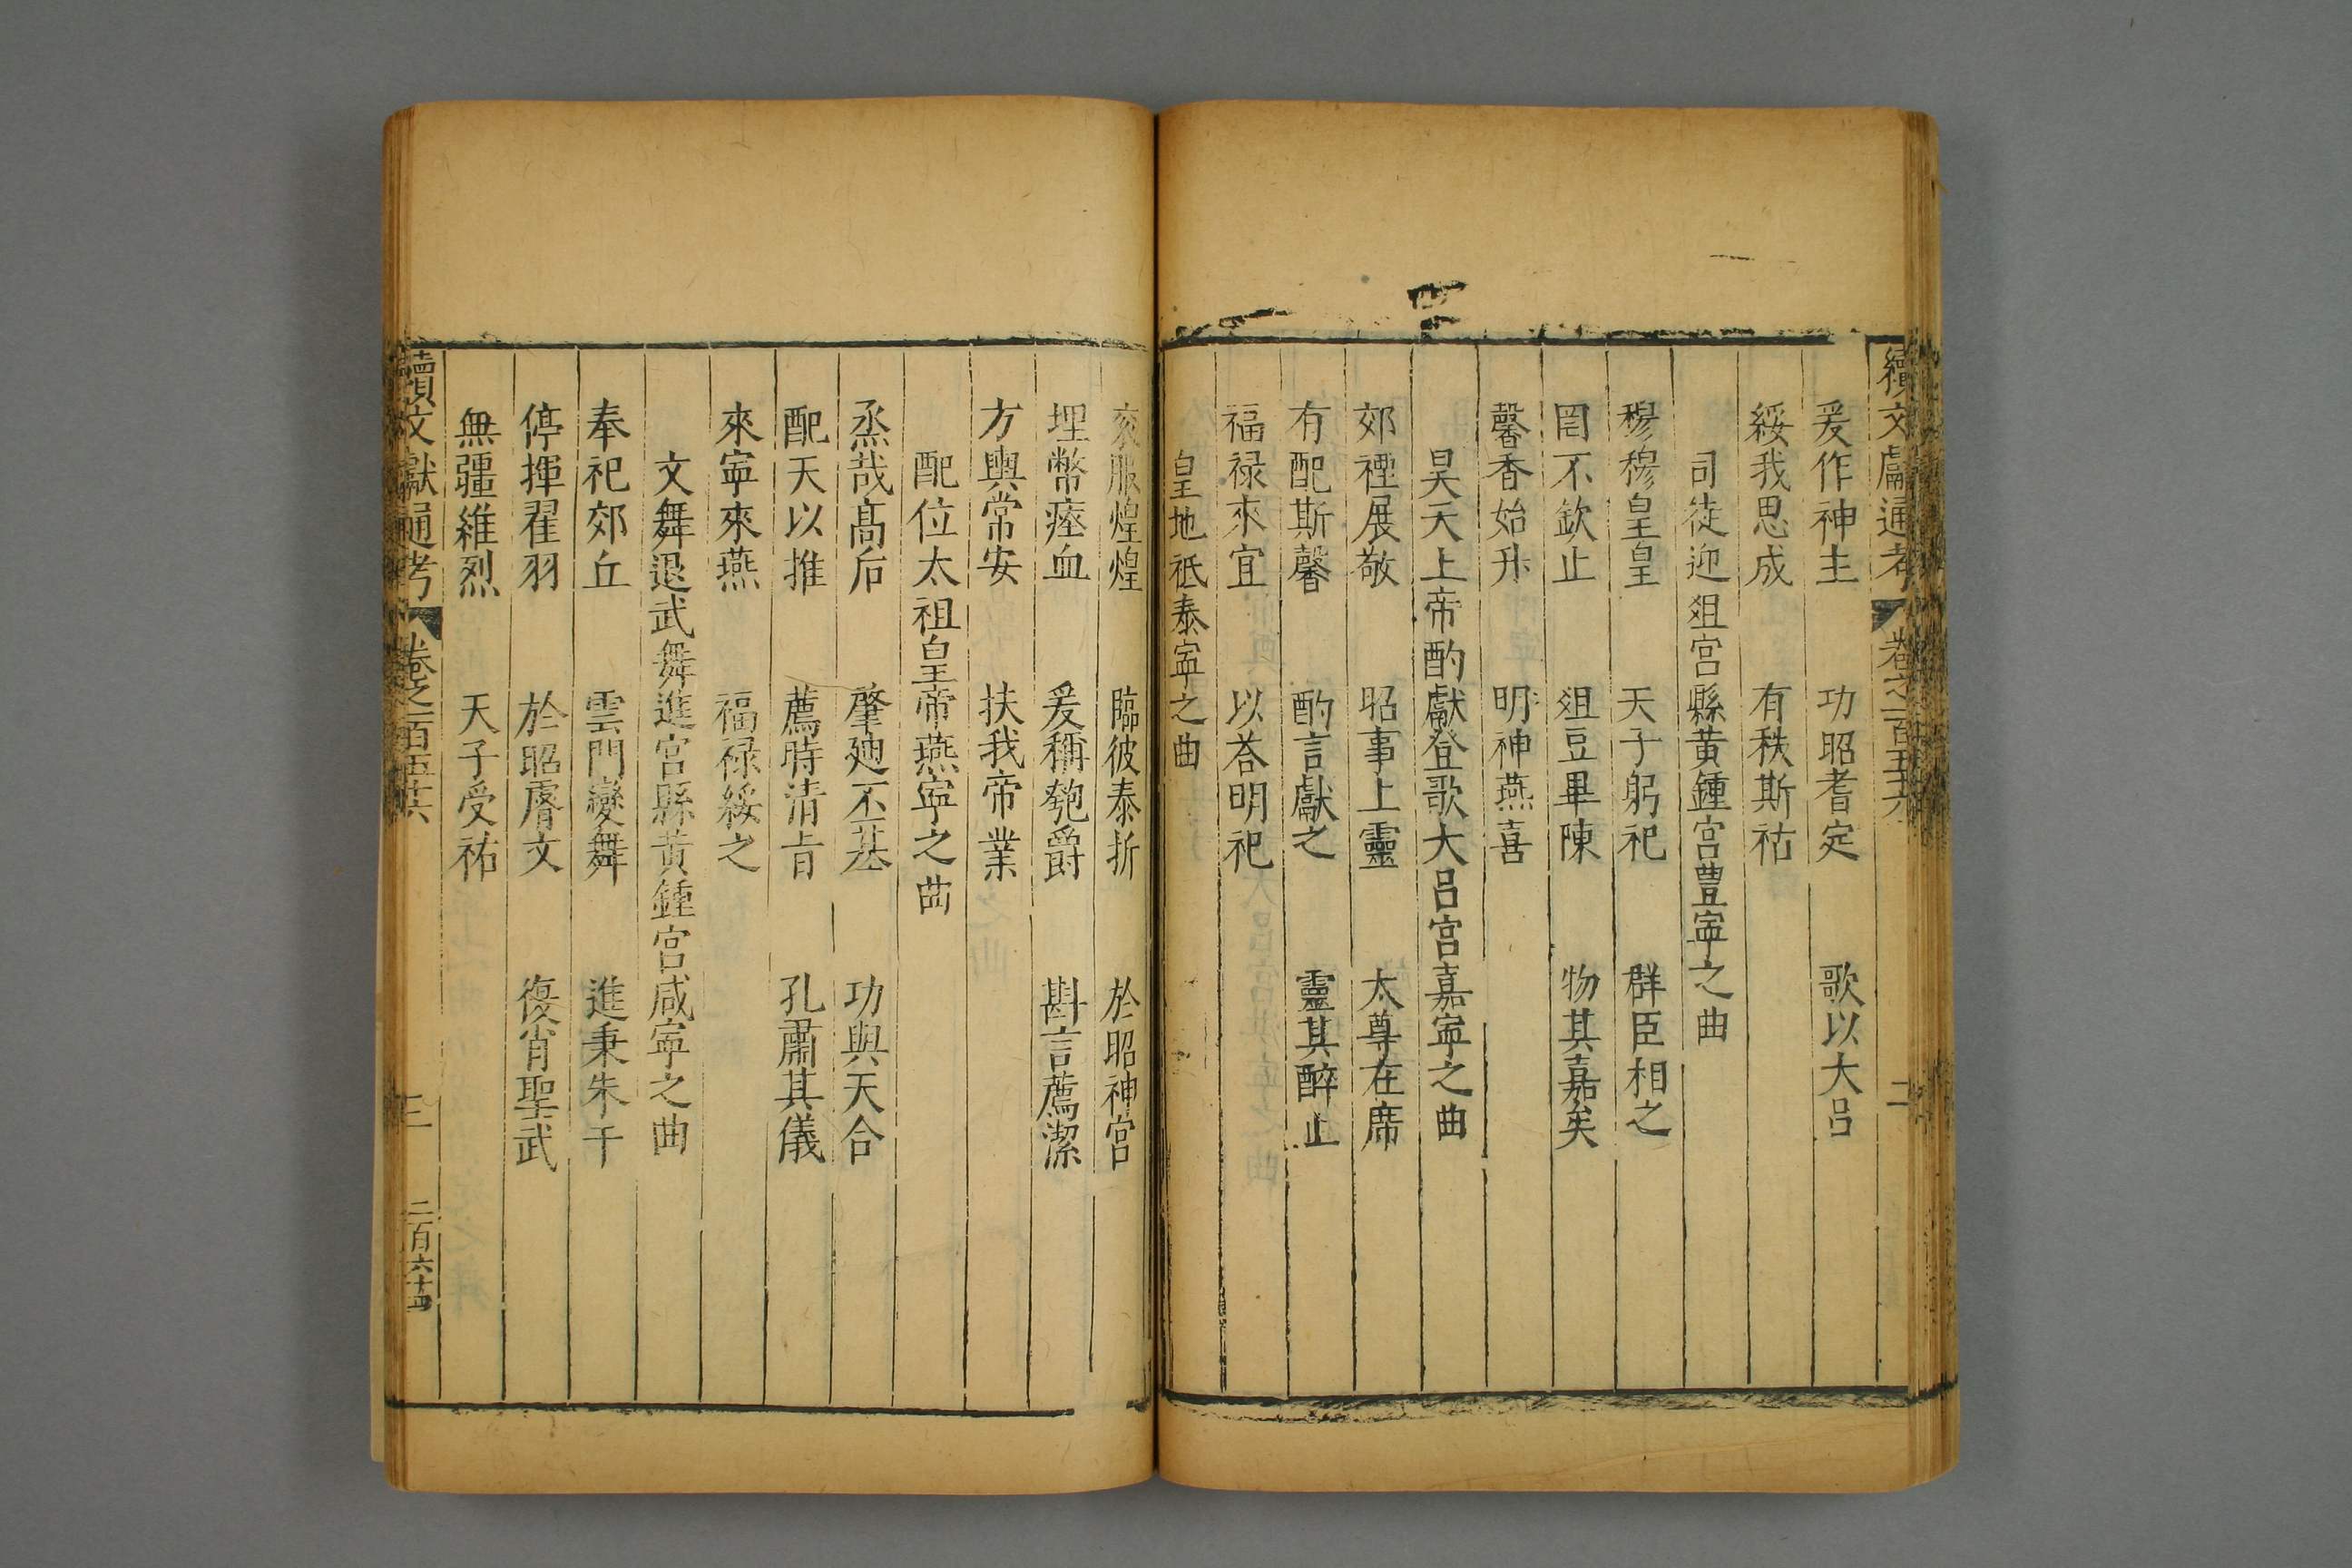 續文獻通考 卷之一百五十六 二
爰作神主 功昭耆定 歌以大呂
綏我思成 有秩斯祜
司徒迎俎宮縣黃鍾宮豊寧之曲
穆穆皇皇 天子躬祀 群臣相之
罔不欽止 俎豆畢陳 物其嘉矣
馨香始升 明神燕喜
昊天上帝酌獻登歌大呂宮嘉寧之曲
郊禋展敬 昭事上靈 太尊在席
有配斯馨 酌言獻之 靈其醉止
福禄來宜 以荅明祀
皇地祇泰寧之曲
袞服煌煌 臨彼泰折 於昭神宮
埋幣瘞血 爰稱匏爵 斟言薦潔
方輿常安 扶我帝業
配位太祖皇帝燕寧之曲
烝哉髙后 肇廸丕基 功與天合
配天以推 薦時清旨 孔肅其儀
來寧來燕 福禄綏之
文舞退武舞進宮縣黃鍾宮咸寧之曲
奉祀郊丘 雲門變舞 進秉朱干
停揮翟羽 於昭睿文 復肖聖武
無疆維烈 天子受祐
續文獻通考 卷之一百五十六 三 二百六十四